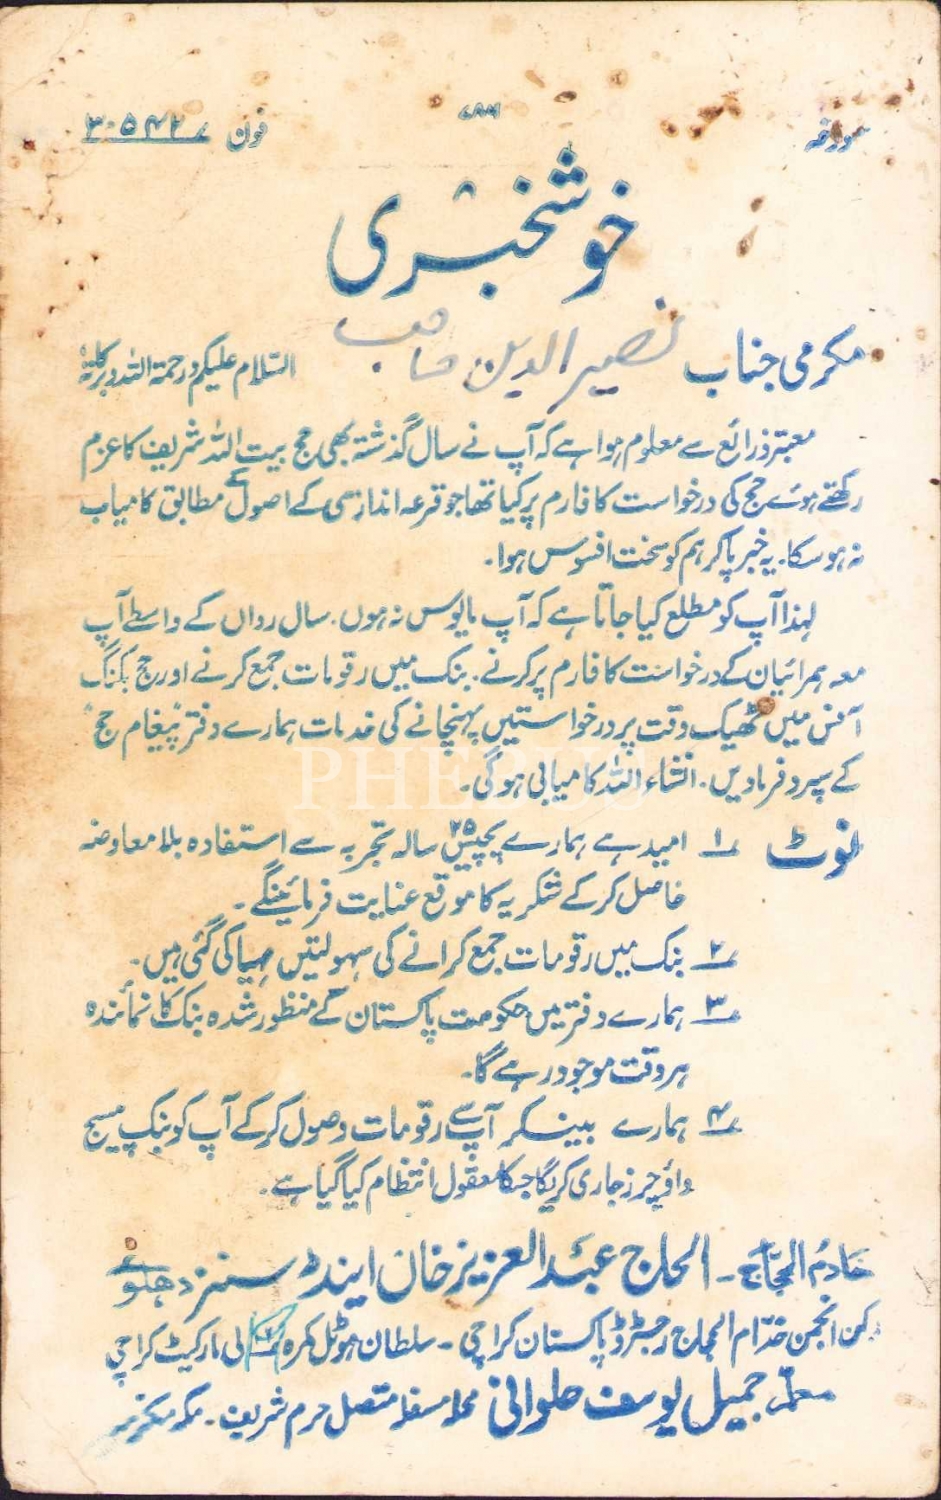 ۷۸۶
مورخہ
فون ۳۰۵۴۲
خوشخبری
مکرمی جناب نصیر الدین صاحب السّلام علیکم ورحمۃ اللہ وبرکاتہٗ
معتبر ذرائع سے معلوم ہوا ہے کہ آپ نے سال گذشتہ بھی حج بیت اللہ شریف کا عزم
رکھتے ہوئے حج کی درخواست کا فارم پر کیا تھا جو قرعہ اندازی کے اصول کے مطابق کامیاب
نہ ہو سکا۔ یہ خبر پا کر ہم کو سخت افسوس ہوا۔
لہذا آپ کو مطلع کیا جاتا ہے کہ آپ مایوس نہ ہوں۔ سال رواں کے واسطے آپ
معہ ہمراہیان کے درخواست کا فارم پر کرنے۔ بنک میں رقومات جمع کرنے اور حج بکنگ
آفس میں ٹھیک وقت پر درخواستیں پہنچانے کی خدمات ہمارے دفتر "پیغام حج"
کے سپرد فرمادیں۔ انشاء اللہ کامیابی ہوگی۔
PHEBUS
نوٹ ۱ امید ہے ہمارے پچیس ۲۵ سالہ تجربہ سے استفادہ بلا معاوضہ
حاصل کر کے شکریہ کا موقع عنایت فرمائینگے۔
۲ بنک میں رقومات جمع کرانے کی سہولتیں مہیا کی گئی ہیں۔
۳ ہمارے دفتر میں حکومت پاکستان کے منظور شدہ بنک کا نمائندہ
ہر وقت موجود رہے گا۔
۴ ہمارے بینکر آپ سے رقومات وصول کر کے آپ کو بنک پیسج
واؤچرز جاری کریگا جسکا معقول انتظام کیا گیا ہے۔
خادمُ الحجاج۔ الحاج عبدالعزیز خان اینڈ سنز دہلوی
رکن انجمن خدّام الحجاج رجسٹرڈ پاکستان کراچی۔ سلطان ہوٹل کمرہ لی مارکیٹ کراچی
معلّم جمیل یوسف حلوانی محلہ مسفلہ متصل حرم شریف۔ مکہ مکرمہ